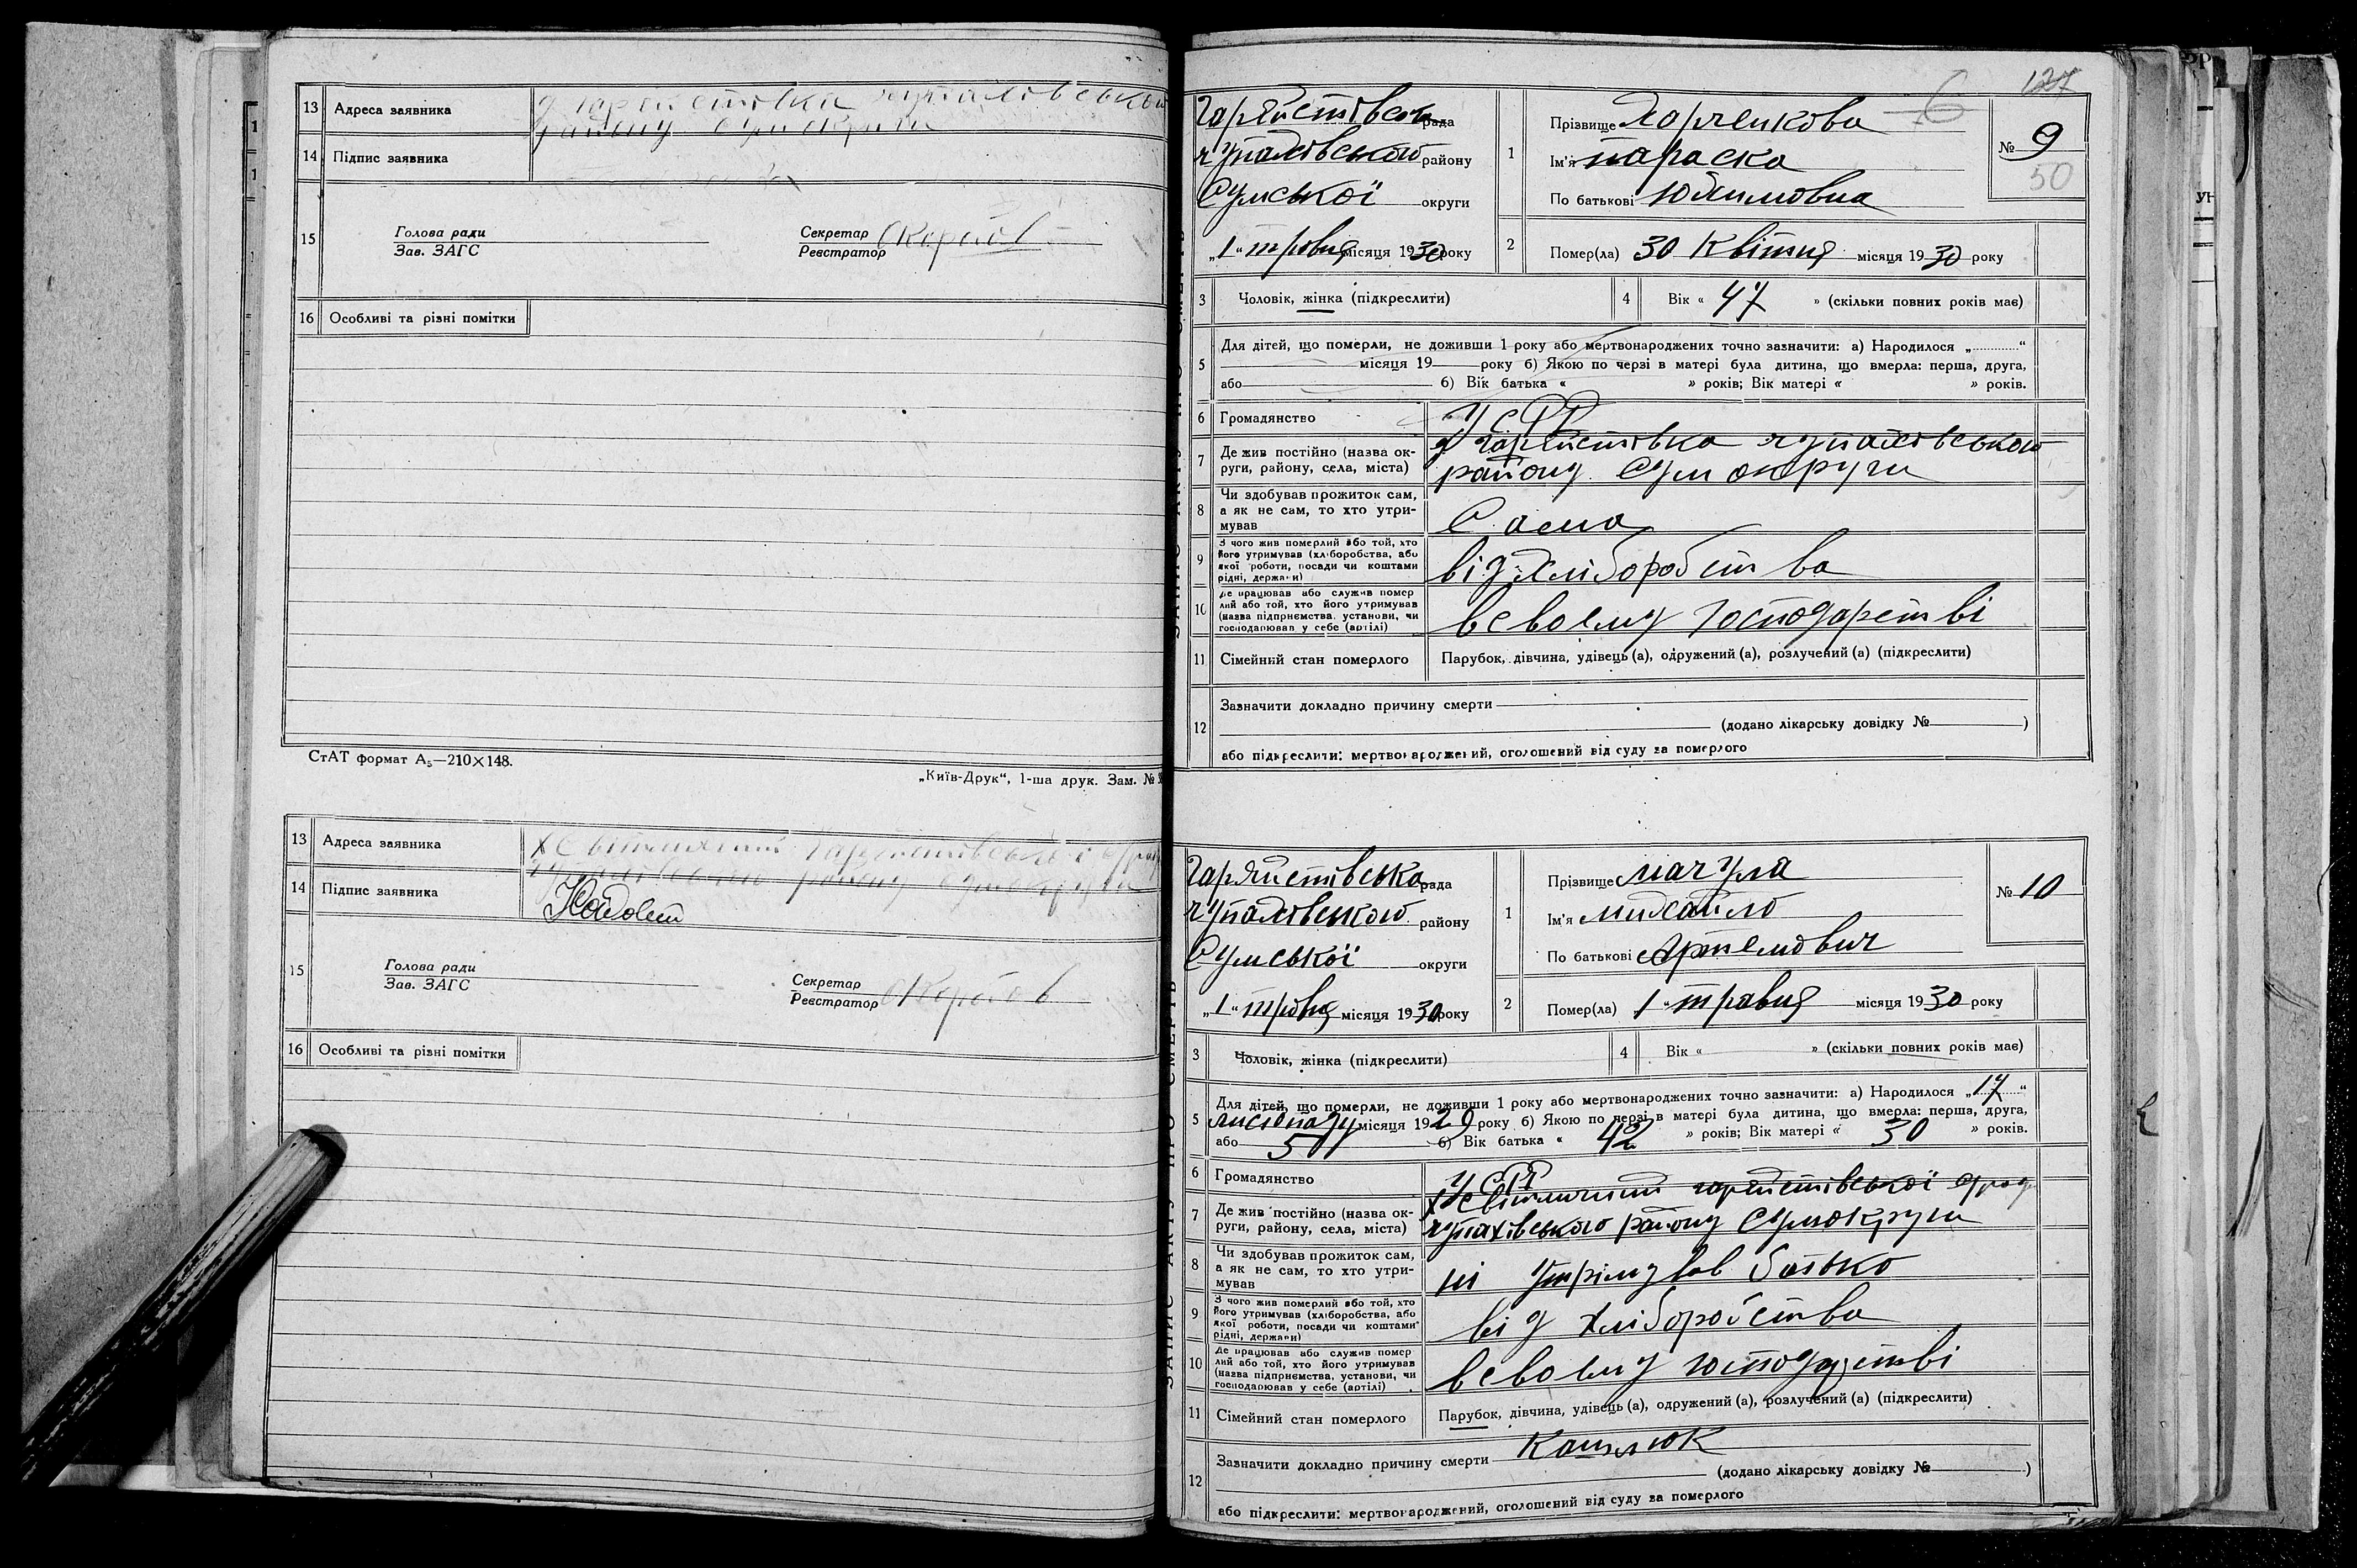 13 Адреса заявника
14 Підпис заявника
15 Голова ради
Зав. ЗАГС
Секретар
Реєстратор
16 Особливі та різні помітки
СтАТ формат А₅—210×148.
„Київ-Друк“, 1-ша друк. Зам. №
13 Адреса заявника
14 Підпис заявника
15 Голова ради
Зав. ЗАГС
Секретар
Реєстратор
16 Особливі та різні помітки
127
6
рада
чупахівського району
Сумської округи
„1“ травня місяця 1930 року
1 Прізвище
Ім'я параска
По батькові
№ 9
50
2 Помер(ла) 30 квітня місяця 1930 року
3 Чоловік, жінка (підкреслити)
4 Вік « 47 » (скільки повних років має)
5 Для дітей, що померли, не доживши 1 року або мертвонароджених точно зазначити: а) Народилося „ “
місяця 19 року б) Якою по черзі в матері була дитина, що вмерла: перша, друга,
або б) Вік батька « » років; Вік матері « » років.
6 Громадянство УСРР
7 Де жив постійно (назва ок-
руги, району, села, міста)
чупахівського
району Сум округи
8 Чи здобував прожиток сам,
а як не сам, то хто утри-
мував
Сама
9 З чого жив померлий або той, хто
його утримував (хліборобства, або
якої роботи, посади чи коштами
рідні, держави)
від хліборобства
10 Де працював або служив помер
лий або той, хто його утримував
(назва підприємства, установи, чи
господарював у себе (артілі)
всвоєму господарстві
11 Сімейний стан померлого
Парубок, дівчина, удівець (а), одружений (а), розлучений (а) (підкреслити)
12 Зазначити докладно причину смерти
(додано лікарську довідку № )
або підкреслити: мертвонароджений, оголошений від суду за померлого
рада
чупахівського району
Сумської округи
„1“ травня місяця 1930 року
1 Прізвище мачула
Ім'я михайло
По батькові Артемович
№ 10
2 Помер(ла) 1 травня місяця 1930 року
3 Чоловік, жінка (підкреслити)
4 Вік « » (скільки повних років має)
5 Для дітей, що померли, не доживши 1 року або мертвонароджених точно зазначити: а) Народилося „17“
листопаду місяця 1929 року б) Якою по черзі в матері була дитина, що вмерла: перша, друга,
або 5 б) Вік батька « 42 » років; Вік матері « 30 » років.
6 Громадянство УСРР
7 Де жив постійно (назва ок-
руги, району, села, міста)
чупахівського району Сумокруги
8 Чи здобував прожиток сам,
а як не сам, то хто утри-
мував
ні утрімував батько
9 З чого жив померлий або той, хто
його утримував (хліборобства, або
якої роботи, посади чи коштами
рідні, держави)
від хліборобства
10 Де працював або служив помер
лий або той, хто його утримував
(назва підприємства, установи, чи
господарював у себе (артілі)
всвоєму господарстві
11 Сімейний стан померлого
Парубок, дівчина, удівець (а), одружений (а), розлучений (а) (підкреслити)
12 Зазначити докладно причину смерти Кашлюк
(додано лікарську довідку № )
або підкреслити: мертвонароджений, оголошений від суду за померлого